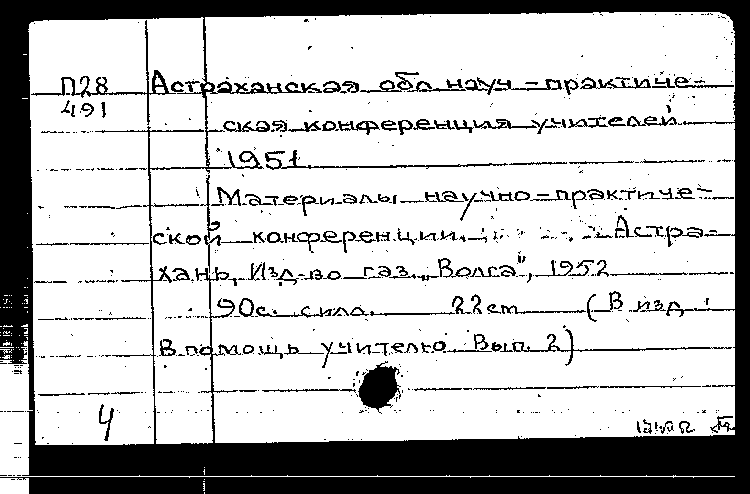 П28
491
Астраханская обл науч-практиче-
ская конференция учителей.
1951.
Материалы научно-практиче-
ской конференции. Астра-
хань, Изд-во газ. „Волга", 1952
90с. с илл. 22см (В изд.:
В помощь учителю. Вып. 2)
4